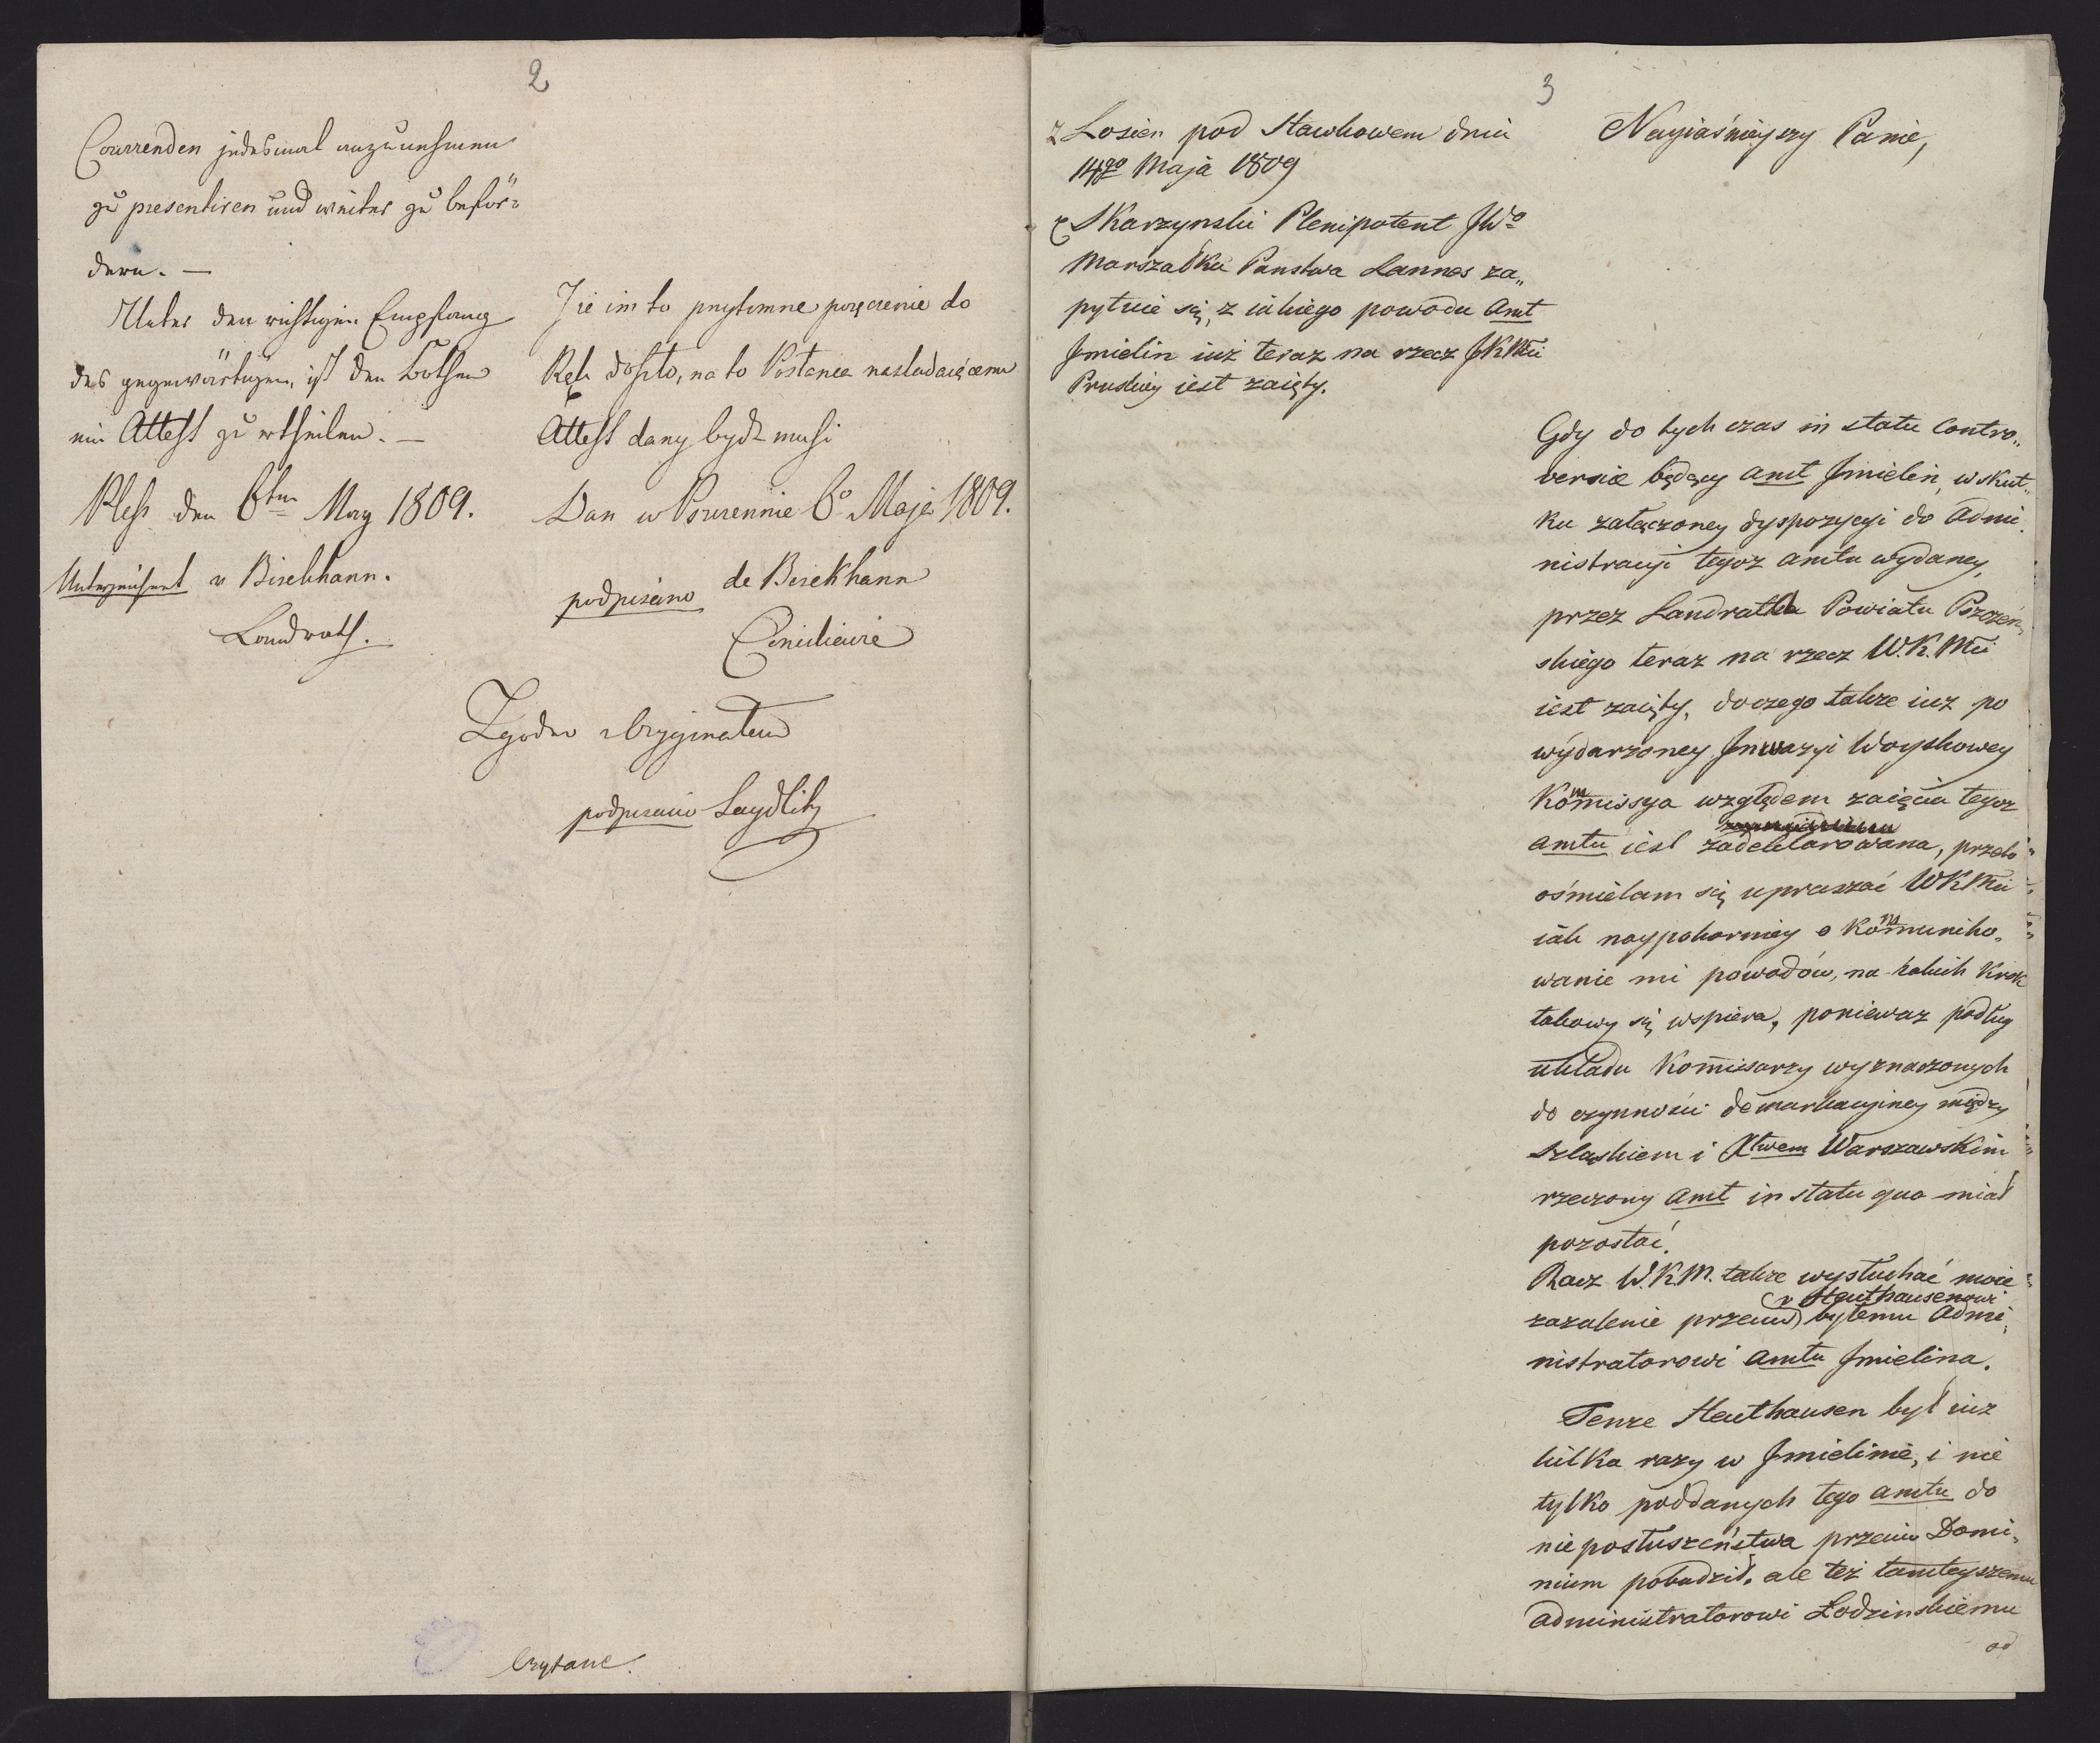 2
Courrenden jedesmal anzunehmen
zu presentiren und weiter zu beför¬
dern. —
Ueber den richtigen Empfang
des gegenwärtigen, ist den Bothen
ein Attest zu ertheilen. —
Pless den 6ten May 1809.
Unterzeichnet v Bisekhann.
Landrath.
Że im to przytomne poręczenie do
Rąk doszło, na to Posłańca
Attest dany bydź musi
Dan w Pszczennie 6o Maja 1809.
podpisano de Bisekhann
Zgodno z Oryginałem
podpisano Seydlitz
Czytane.
3
z Losien pod Sławkowem dnia
14go Maja 1809
Skarzynski Plenipotent JWo
Marszałka Panstwa Lannes za„
pytuie się, z iakiego powodu Amt
Jmielin iuż teraz na rzecz JKMci
Pruskiey iest zaięty.
Nayiaśnieyszy Panie,
Gdy do tych czas in statu contro„
versiæ będący Amt Jmielin, w skut„
ku załączoney dyspozycyi do Admi
nistracyi tegoż Amtu wydaney,
przez Landratha Powiatu Pszczeń„
skiego teraz na rzecz W.K.Mci
iest zaięty, do czego także iuż po
wydarzoney Jnwazyi Woyskowey
Kommissya względem zaięcia tegoż
Amtu iest zadeklarowana, przeto
ośmielam się upraszać WKMci
iak naypokorniey o Kommuniko„
wanie mi powodów, na iakich Krok
takowy się wspiera, ponieważ podług
układu Kom̄issarzy wyznaczonych
do czynności demarkacyiney między
Szląskiem i Xtwem Warszawskim
rzeczony Amt in statu quo miał
pozostać.
Racz W.K.M. także wysłuchać moie
v Heuthausenowi
zażalenie przeciw byłemu Admi„
nistratorowi Amtu Jmielina.
Tenże Heuthausen był iuż
kilka razy w Jmielinie, i nie
tylko poddanych tego Amtu do
nieposłuszeństwa przeciw Domi„
nium pobudził, ale też tamteyszemu
Administratorowi Łodzinskiemu
od